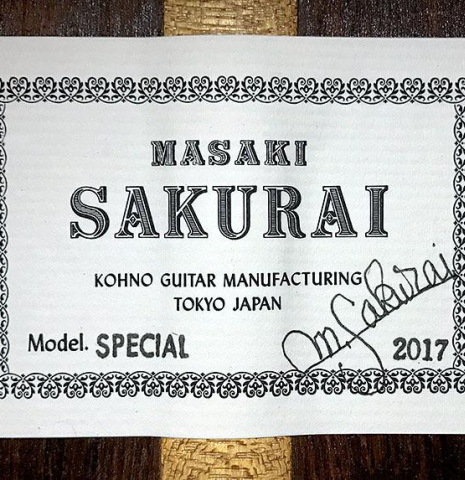 MASAKI
SAKURAI
KOHNO GUITAR MANUFACTURING
TOKYO JAPAN
Model. SPECIAL
M. Sakurai
2017